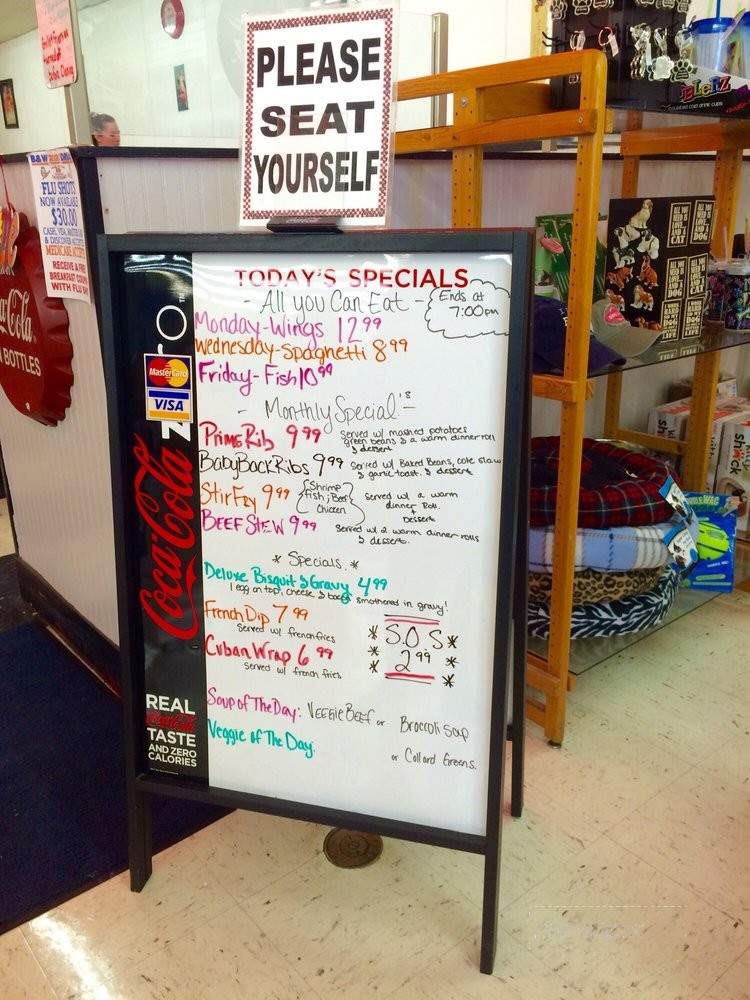 PLEASE
SEAT
YOURSELF
B&W
FLU SHOTS
NOW AVAILABLE
$30.00
CASH, VISA, MASTER
& DISCOVER
MEDICARE
RECEIVE A FREE
BREAKFAST
WITH FLU
Coca-Cola
BOTTLES
TODAY'S SPECIALS
- All you Can Eat -
Ends at
7:00pm
Monday-Wings 12.99
Wednesday-Spaghetti 8.99
Friday-Fish 10.99
- Monthly Special's -
Prime Rib 9.99
Served w/ mashed potatoes
green beans & a warm dinner roll
& dessert
Baby Back Ribs 9.99
Served w/ Baked Beans, cole slaw
& garlic toast. & dessert
Stir Fry 9.99
Shrimp
Fish ; Beef
Chicken
served w/ a warm
dinner roll
+
Dessert
BEEF STEW 9.99
Served w/ 2 warm dinner rolls
& dessert.
* Specials. *
Deluxe Bisquit & Gravy 4.99
1 egg on top, cheese, & bacon smothered in gravy!
French Dip 7.99
Served w/ french fries
Cuban Wrap 6.99
served w/ french fries
* S.O.S *
* 2.99 *
* *
Soup of The Day: VEGGIE BEEF or Broccoli Soup
Veggie of The Day:
or Collard Greens.
MasterCard
VISA
Coca-Cola
REAL
Coca-Cola
TASTE
AND ZERO
CALORIES
ALL YOU
NEED IS
LOVE
CAT
DOG